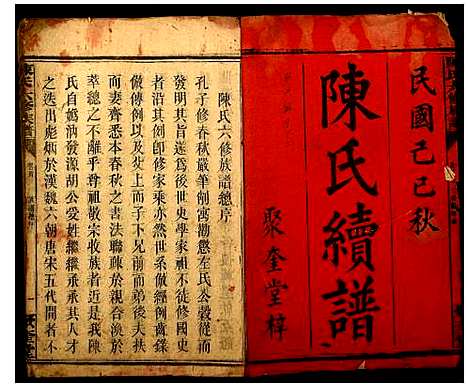 民國己巳秋
陳氏續譜
聚奎堂梓
陳氏六修族譜總序
孔子修春秋嚴筆削寓勸懲左氏公穀從而
發明其旨遂為後世史學家祖不徒修國史
者沿其例即修家乘亦然世系做經例齒錄
做傳例以及先上而子下兄前而弟後夫扶
而妻齊悉本春秋之書法聯踈於親合渙於
萃總之不離乎尊祖敬宗收族者近是我陳
氏自媯汭發源胡公受姓繼繼承承其人才
之迭出彪炳於漢魏六朝唐宋五代間者不